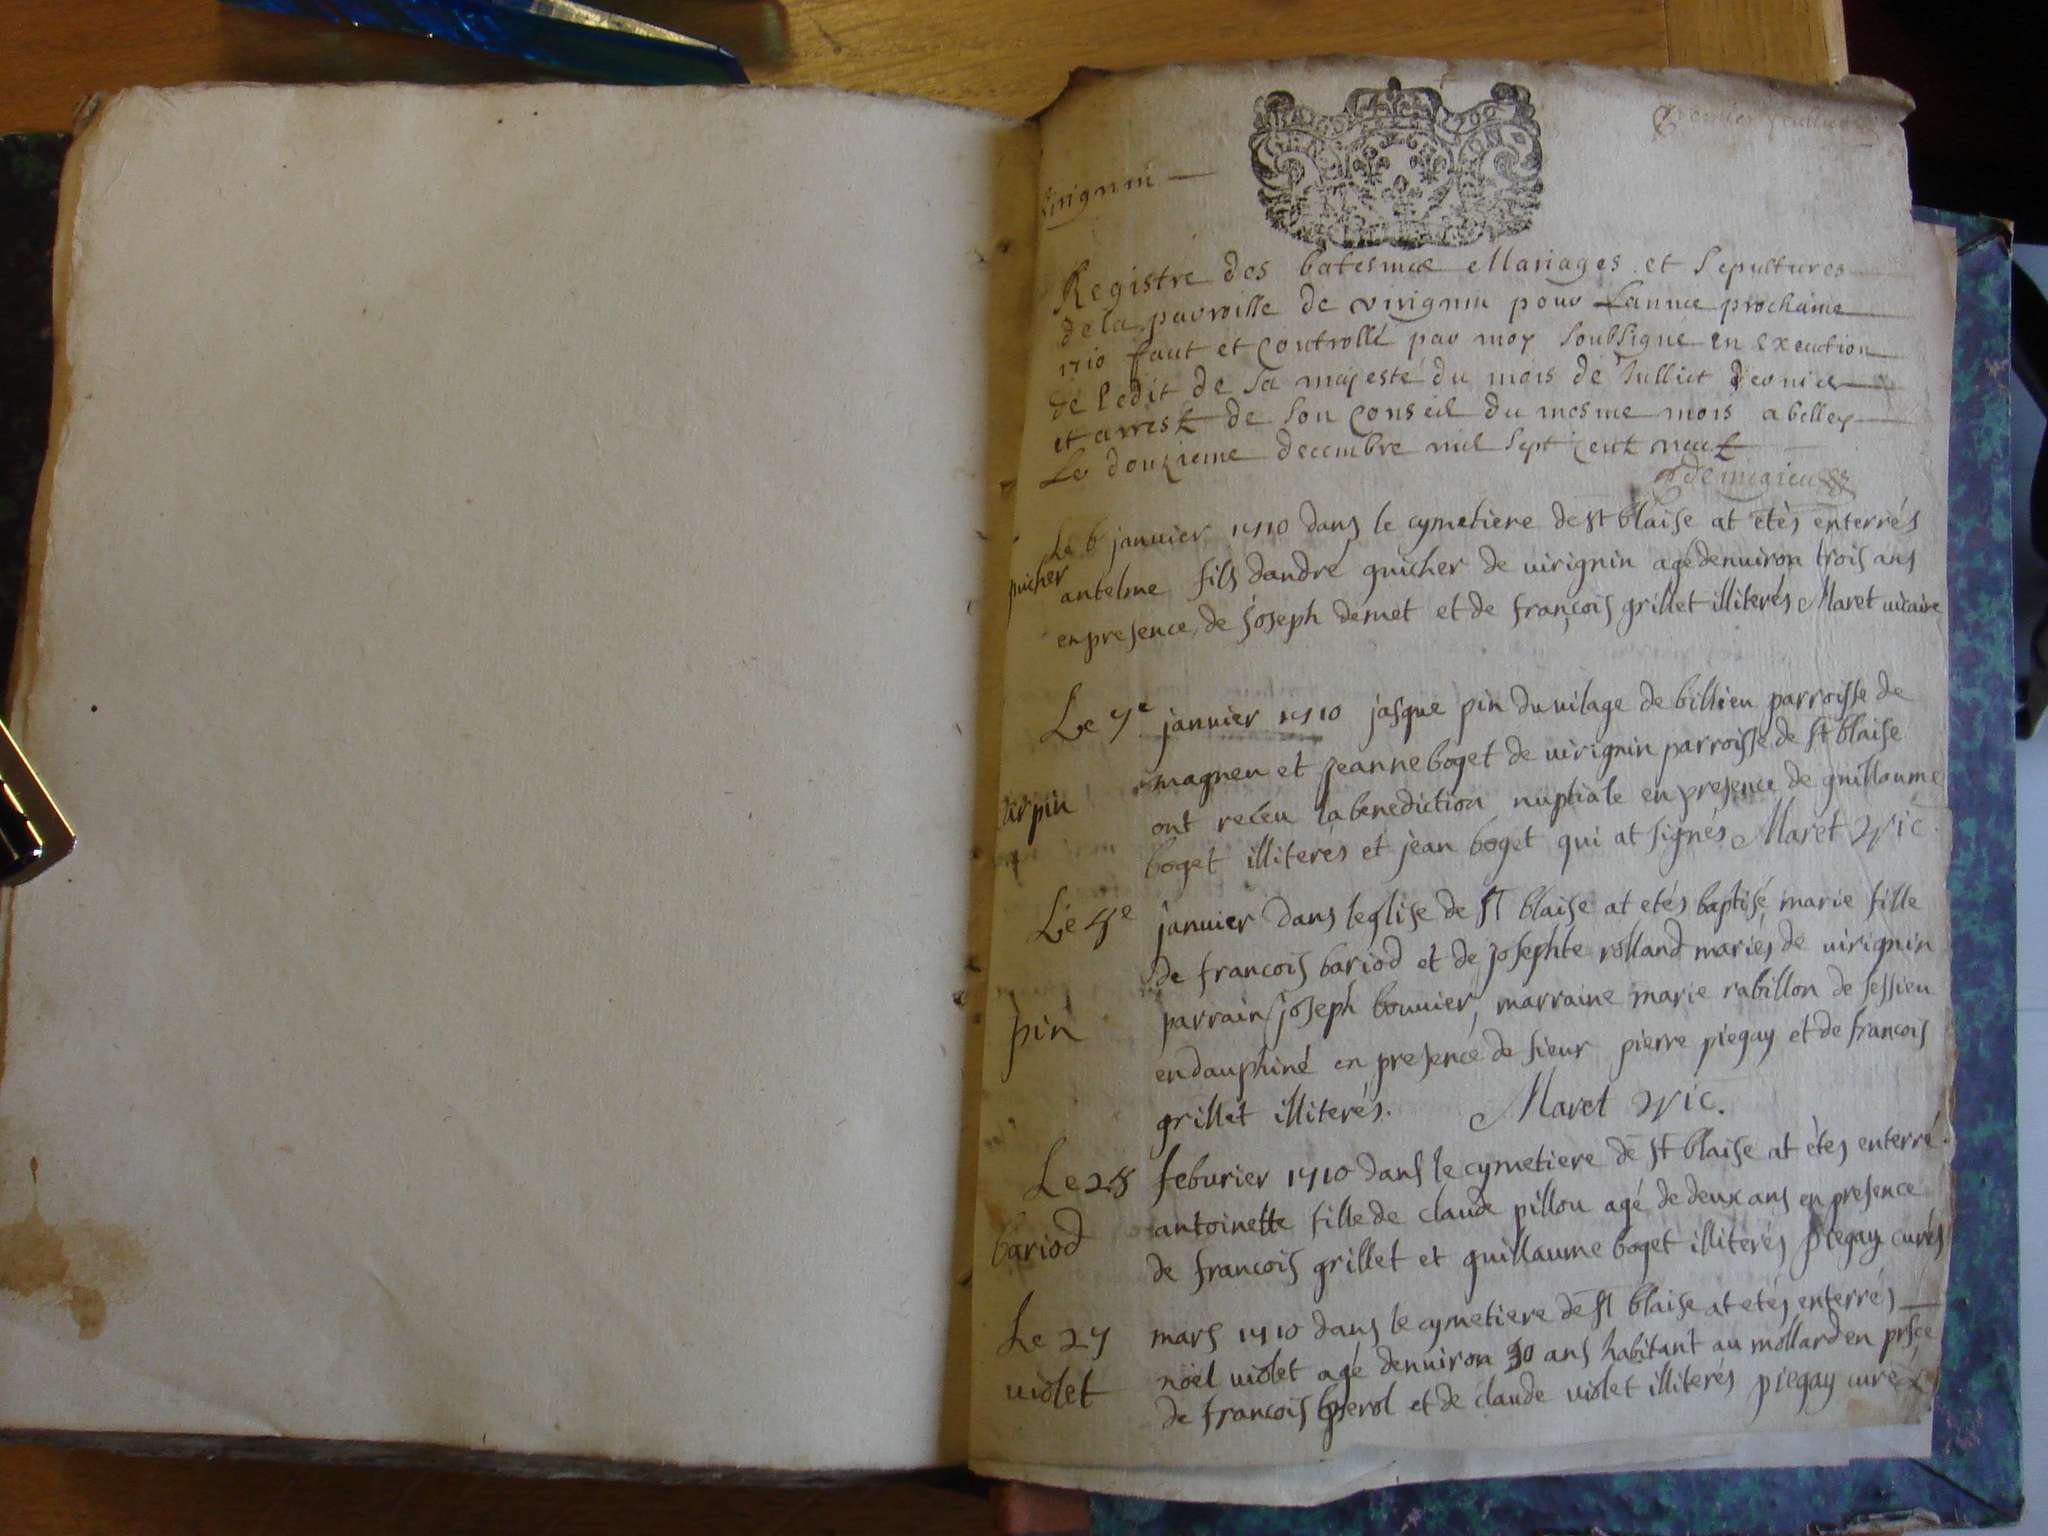 premier feuillet
Virignin
Registre des batesmes Mariages et sepultures
de la parroisse de virignin pour lannee prochaine
1710 faut et controllé par moy soubsigne en execution
de ledit de sa majesté du mois de Julliet dernier
et arrest de son conseil du mesme mois a belley
Le douzieme decembre mil sept cent neuf
Le 6 janvier 1710 dans le cymetiere de st blaise at etés enterrés
antelme fils dandré guicher de virignin agé denuiron trois ans
en presence de joseph demet et de françois grillet illiterés Maret uicaire
Le 7e janvier 1710 jasque pin du uilage de billieu parroisse de
magneu et jeanne boget de uirignin parroisse de st blaise
arpin
ont receu la benediction nuptiale en presence de guillaume
boget illiterés et jean boget qui at signés Maret vic.
Le 7e janvier dans leglise de st blaise at etés baptisé marie fille
de francois bariod et de josephte rolland mariés de uirignin
pin
parrain joseph bouuier, marraine marie rabillon de sessieu
en dauphiné en presence de sieur pierre piegay et de francois
grillet illiterés. Maret vic.
Le 28 feburier 1710 dans le cymetiere de st blaise at étés enterré
antoinette fille de claude pillou agé de deux ans en presence
bariod
de francois grillet et guillaume boget illiterés piegay curés
Le 27 mars 1710 dans le cymetiere de st blaise at etés enterrés
noel uiolet agé denuiron 30 ans habitant au mollard en prsce
uiolet
de francois et de claude uiolet illiterés piegay curé